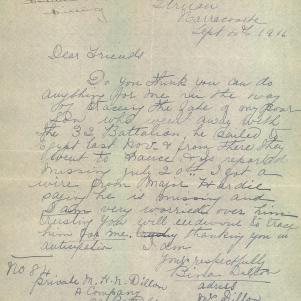 Struan
Narracoorte
Sept 4th 1916
Dear Friends
Do you think you can do
anything for me in the way
of traceing the fate of my poor
son who went away with
the 32 Battalion, he sailed to
Egypt last Nov. & from there they
went to France & is reported
missing July 20th. I got a
wire from Major Hardie
saying he is missing and
I am very worried over him
trusting you will endeavour to trace
him for me. thanking you in
anticipation I am
Yours respectfully
Dillon
adress
Mrs Dillon
No 84
Private M. H. N. Dillon
A Company